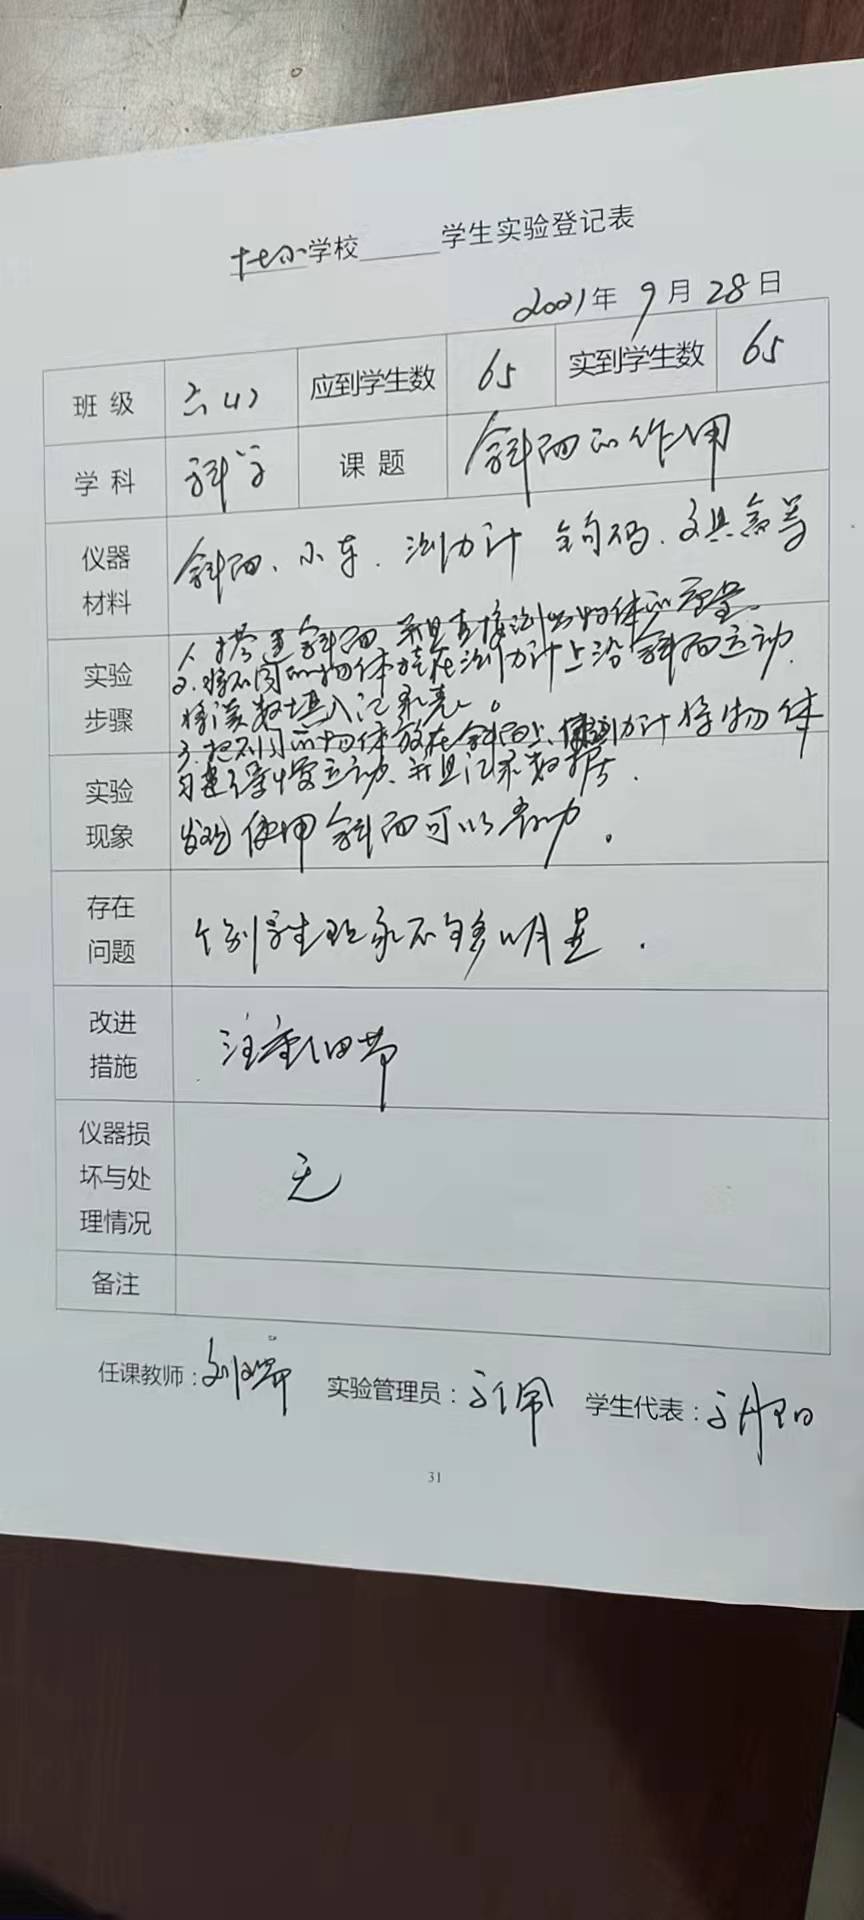 十七小学校 学生实验登记表
2021年 9月 28日
班级 六(1) 应到学生数 65 实到学生数 65
学科 科学 课题 斜面的作用
仪器材料 斜面、小车、测力计 钩码、文具盒等
实验步骤 1、搭建斜面,并且直接测出物体的重量。
2.将不同的物体挂在测力计上沿斜面运动.
将读数填入记录表。
3.把不同的物体放在斜面上、测力计将物体
并且记录数据.
实验现象 发现使用斜面可以省力。
存在问题 个别学生现象不够明显.
改进措施 注重细节
仪器损坏与处理情况 无
备注
任课教师: 实验管理员: 学生代表:
31